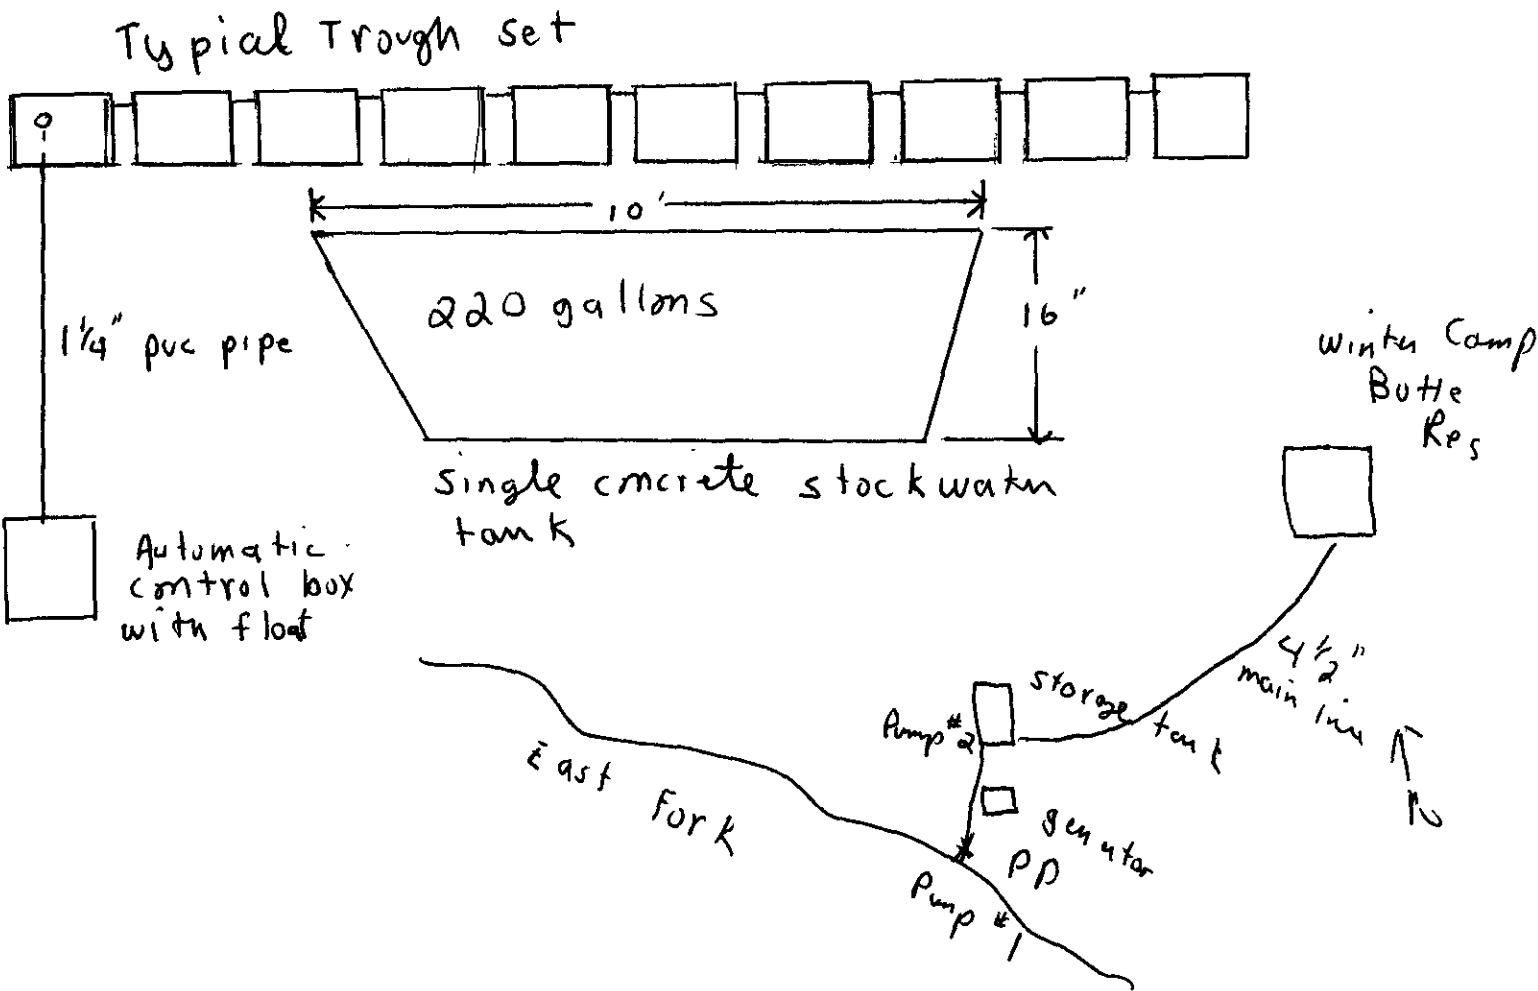 Typial Trough set
10'
220 gallons
16"
1 1/4" pvc pipe
single concrete stockwater
tank
Automatic
control box
with float
Winter Camp
Butte
Res
4 1/2"
main line
storage tank
Pump #2
generator
PD
Pump #1
East Fork
N